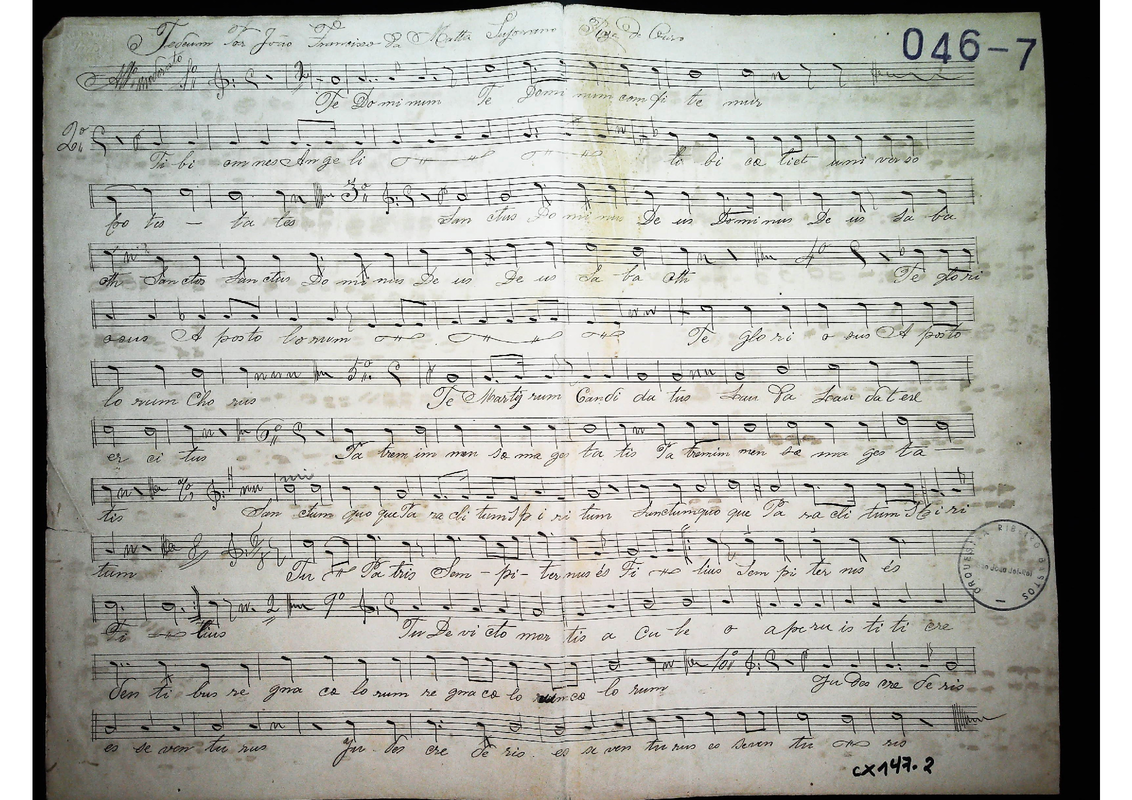 Tedeum Por João Francisco da Matta Suprano
046-7
Te Do mi num Te Domi num con fi te mur
2º
Ti bi om nes An ge li ti bi cæ li et uni ver sæ
po tes - ta tes 3º San ctus Do mi nus De us Dominus De us Sa ba
oth Sanctus Sanctus Do mi nus De us De us Sa ba oth 4º Te glo ri
o sus A posto lo rum Te glo ri o sus A posto
lo rum Cho rus 5º Te Marty rum Candi da tus Lau da Lau dat ere
er ci tus 6º Pa trem im men sæ ma ges ta tis Pa tremim men sæ ma ges ta -
tis 7º San ctum quo que Pa ra cli tum Spi ri tum Sanctumquo que Pa ra cli tum Spi ri
tum 8º Tu Pa tris Sem - pi - ter nus és Fi lius Sem pi ter nus és
Fi lius 9º Tu De vi cto mor tis a cu le o aperu is ti ti cre
den ti bus re gna cæ lo rum re gna cæ lo rum cæ lo rum 10º Ju des cre de ris
es se ven tu rus Ju des cre de ris es se ven tu rus es seven tu rus
ORQUESTRA RIBEIRO BASTOS
São João del-Rei
cx147.2